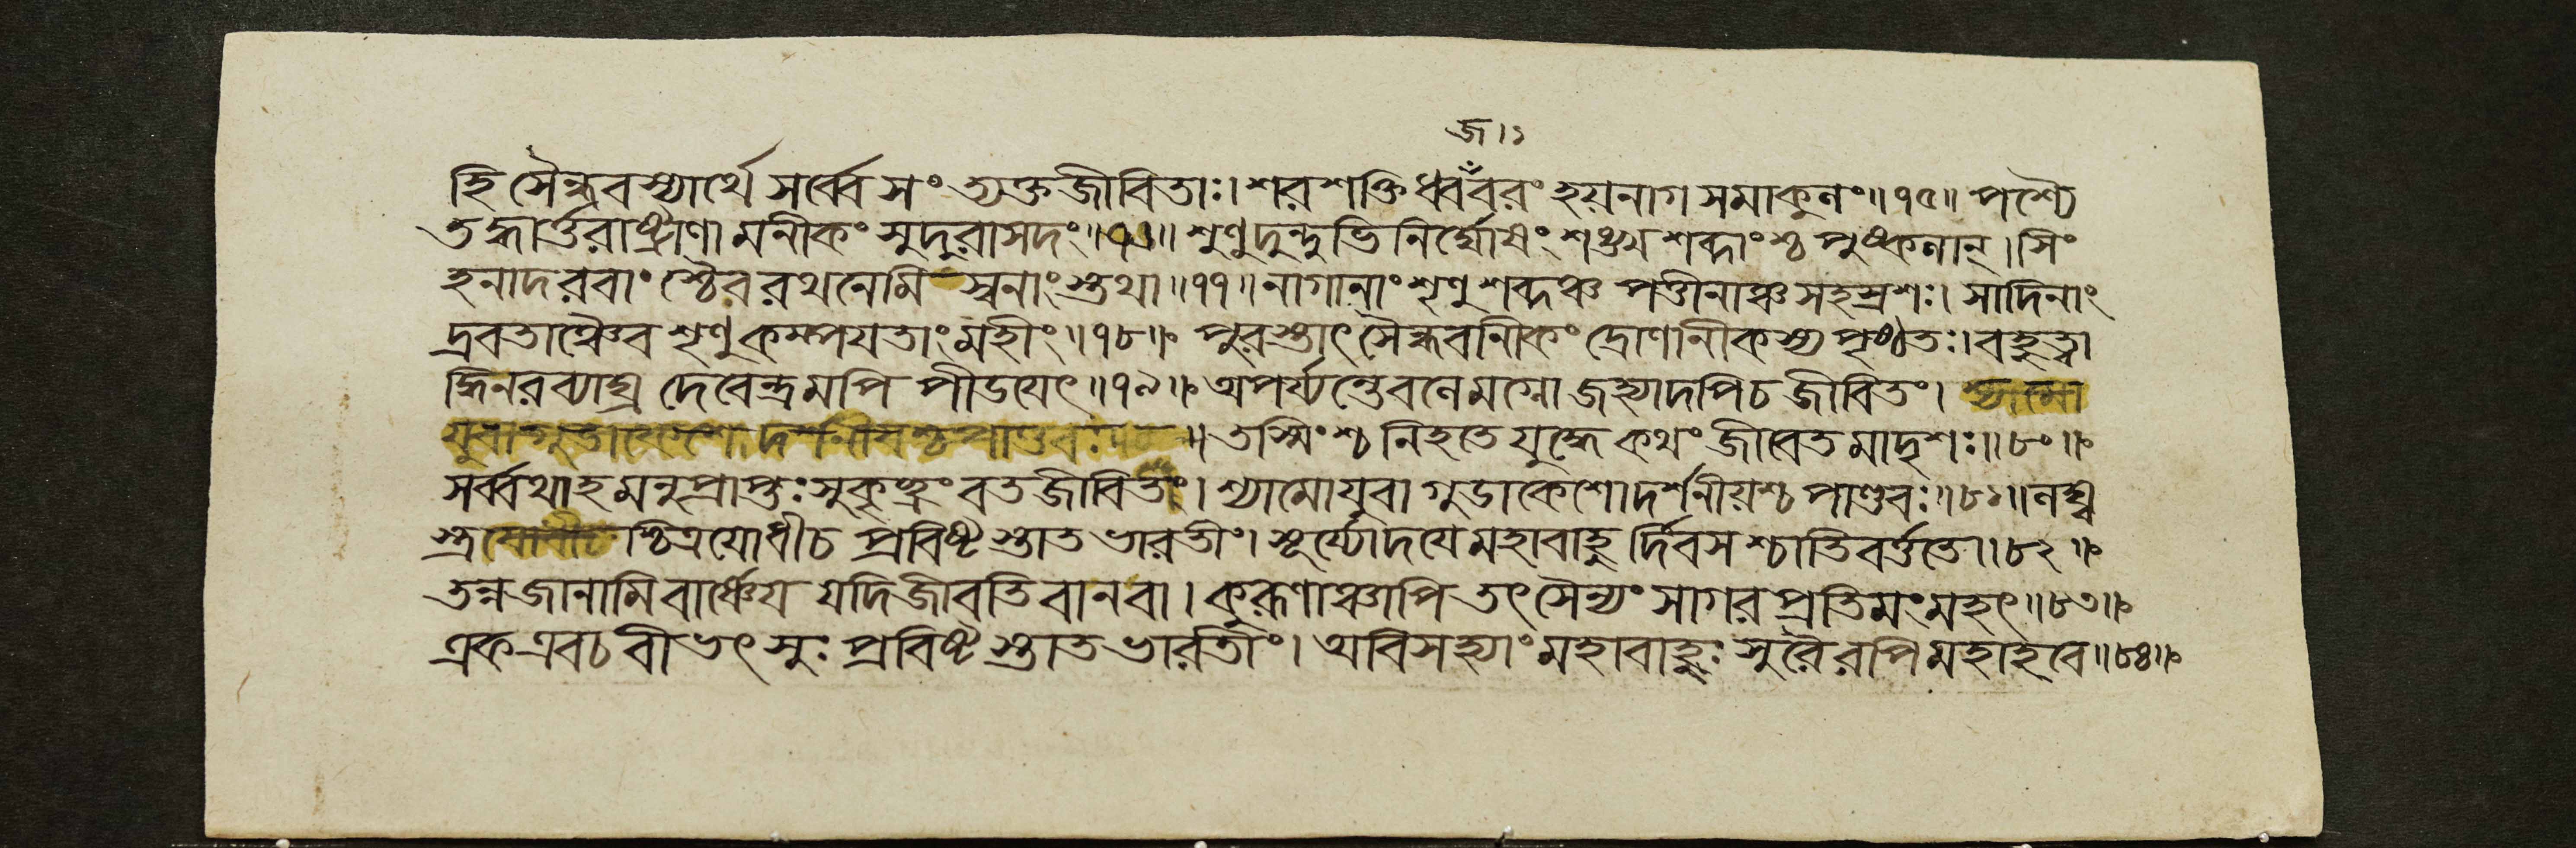 জ।১
হি সৈন্ধবস্যার্থে সর্ব্বে সংত্যক্তজীবিতাঃ। শরশক্তিধ্ববঁরং হয়নাগসমাকুলং॥৭৫॥ পশ্যৈ
তদ্ধার্ত্তরাষ্ট্রাণামনীকং সুদুরাসদং॥৭৬॥ শৃণু দুন্দুভিনির্ঘোষং শঙ্খশব্দাংশ্চ পুষ্কলান্। সিং
হনাদরবাংশ্চৈব রথনেমিস্বনাংস্তথা॥৭৭॥ নাগানাং শৃণু শব্দঞ্চ পত্তীনাঞ্চ সহস্রশঃ। সাদিনাং
দ্রবতাঞ্চৈব শৃণু কম্পয়তাং মহীং॥৭৮॥ পুরস্তাৎ সৈন্ধবানীকং দ্রোণানীকস্য পৃষ্ঠতঃ। বহুত্বা
দ্ধি নরব্যাঘ্র দেবেন্দ্রমপি পীডয়েৎ॥৭৯॥ অপর্য্যন্তে বলে মগ্নো জহ্যাদপি চ জীবিতং। শ্যামো
যুবা গুডাকেশো দর্শনীয়শ্চ পাণ্ডবঃ॥ তস্মিংশ্চ নিহতে যুদ্ধে কথং জীবেত মাদৃশঃ॥৮০॥
সর্ব্বথাহমনুপ্রাপ্তঃ সুকৃচ্ছ্রং বত জীবিতং। শ্যামো যুবা গুডাকেশো দর্শনীয়শ্চ পাণ্ডবঃ॥৮১॥ লঘ্ব
স্ত্রশ্চিত্রযোধী চ প্রবিষ্টস্তাত ভারতীং। সূর্য্যোদয়ে মহাবাহুর্দিবসশ্চাতিবর্ত্ততে॥৮২॥
তন্ন জানামি বার্ষ্ণেয় যদি জীবতি বা ন বা। কুরূণাঞ্চাপি তৎ সৈন্যং সাগরপ্রতিমং মহৎ॥৮৩॥
এক এব চ বীভৎসুঃ প্রবিষ্টস্তাত ভারতীং। অবিসহ্যাং মহাবাহুঃ সুরৈরপি মহাহবে॥৮৪॥